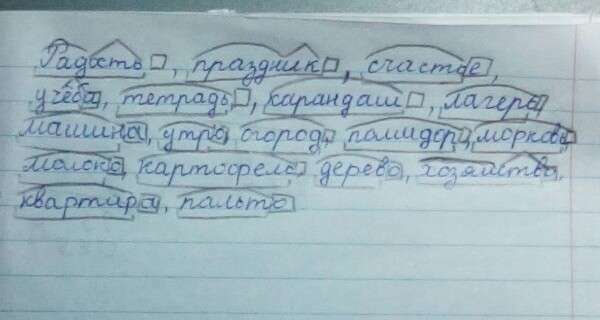 Радость, праздник, счастье,
учёба, тетрадь, карандаш, лагерь
машина, утро огород, помидор, морковь
молоко, картофель дерево, хозяйство,
квартира, пальто